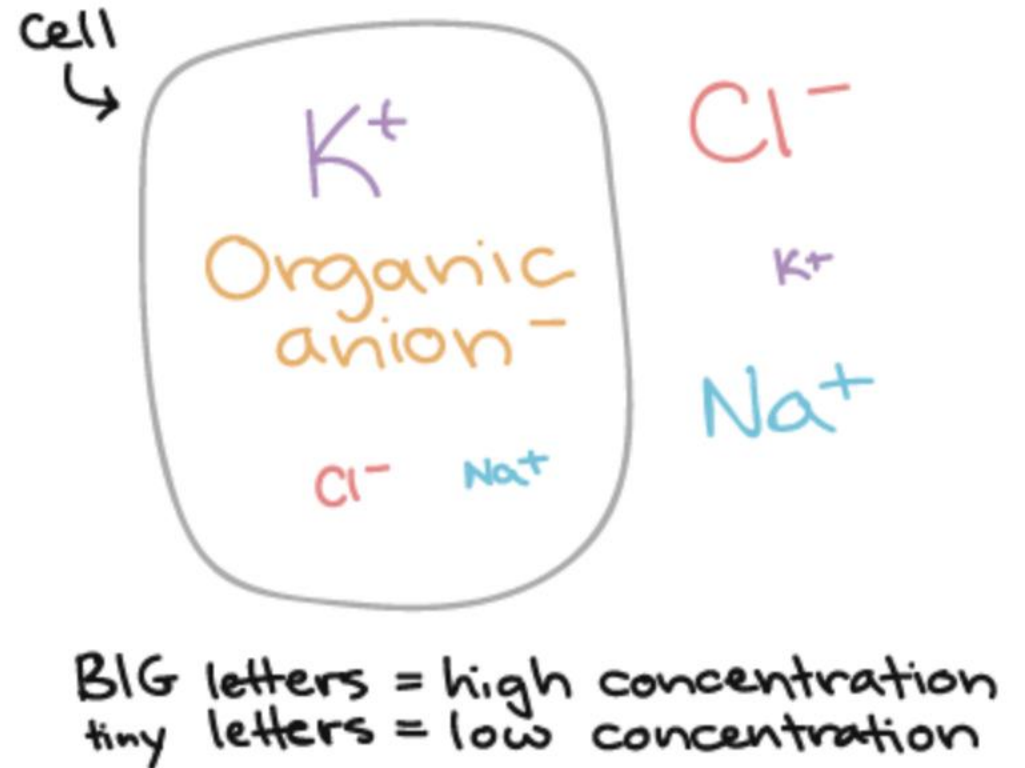 cell
K⁺
Cl⁻
Organic
anion⁻
K⁺
Na⁺
Cl⁻ Na⁺
BIG letters = high concentration
tiny letters = low concentration